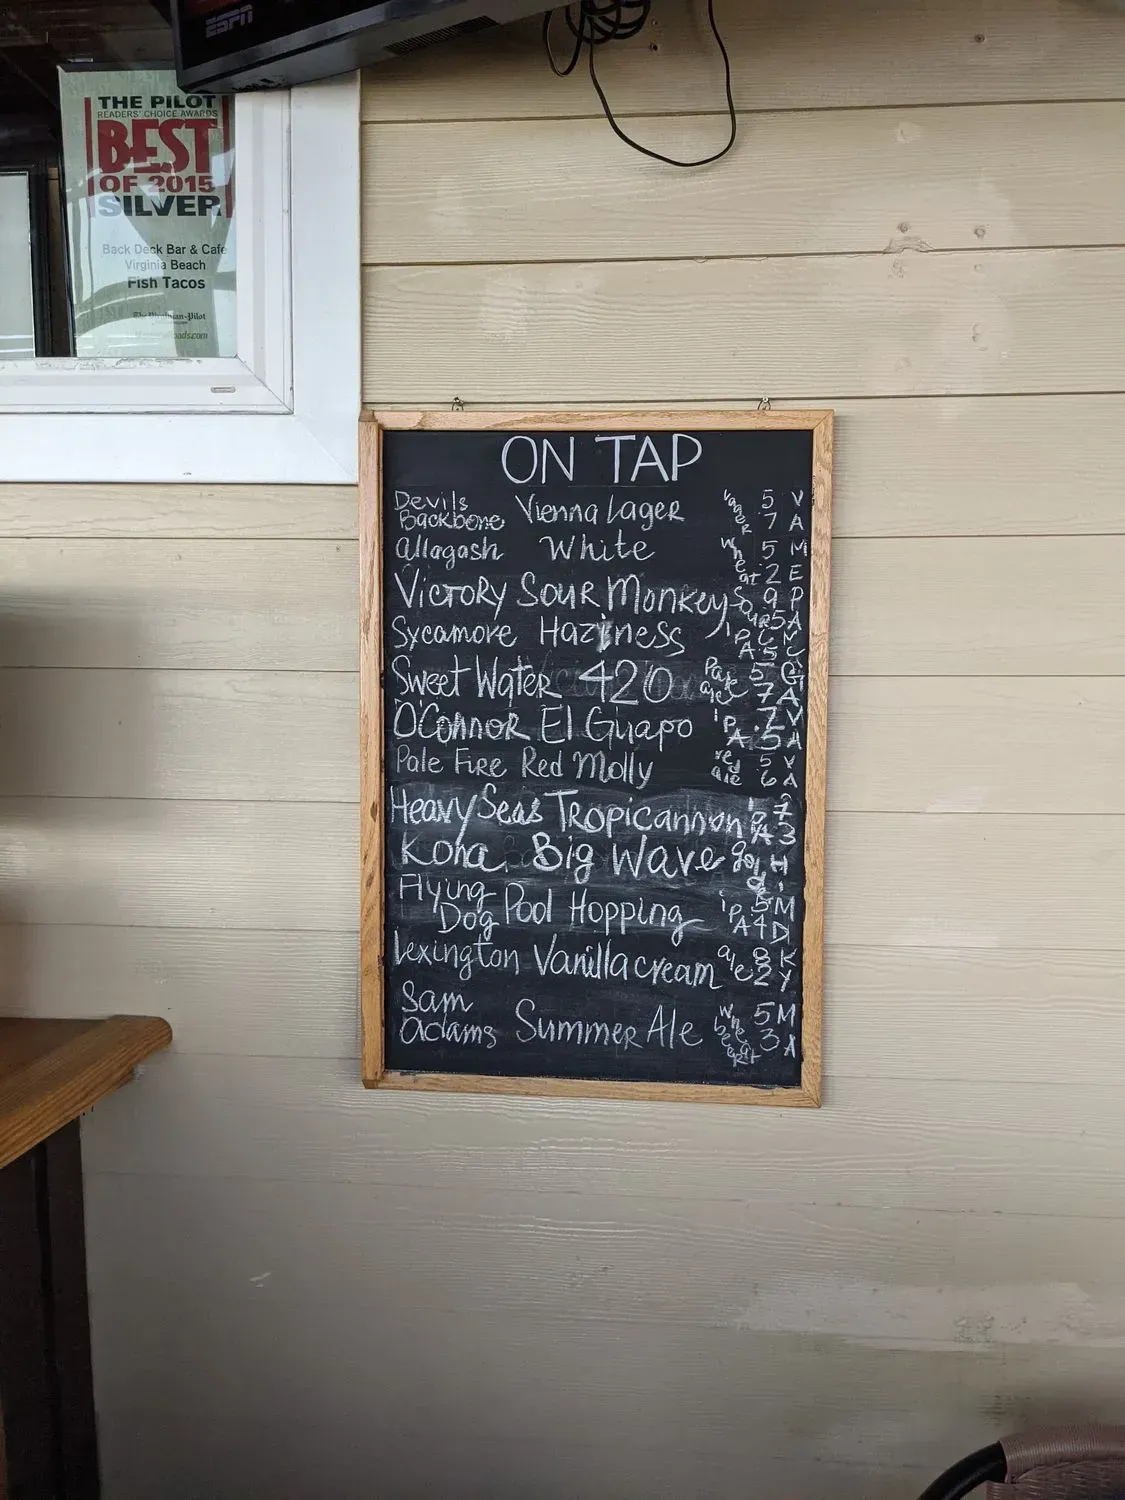 ESPN
THE PILOT
READERS' CHOICE AWARDS
BEST
OF 2015
SILVER
Back Deck Bar & Cafe
Virginia Beach
Fish Tacos
The Virginian-Pilot
ON TAP
Devils Backbone Vienna Lager Lager 57 VA
Allagash White Wheat 52 ME
Victory Sour Monkey Sour 95 PA
Sycamore Haziness IPA 65 NC
Sweet Water 420 Pale ale 57 GA
O'Connor El Guapo IPA 75 VA
Pale Fire Red Molly red ale 56 VA
Heavy Seas Tropicannon IPA 73
Kona Big Wave gold HI
Flying Dog Pool Hopping IPA 54 MD
Lexington Vanilla cream ale 82 KY
Sam Adams Summer Ale Wheat beer 53 MA